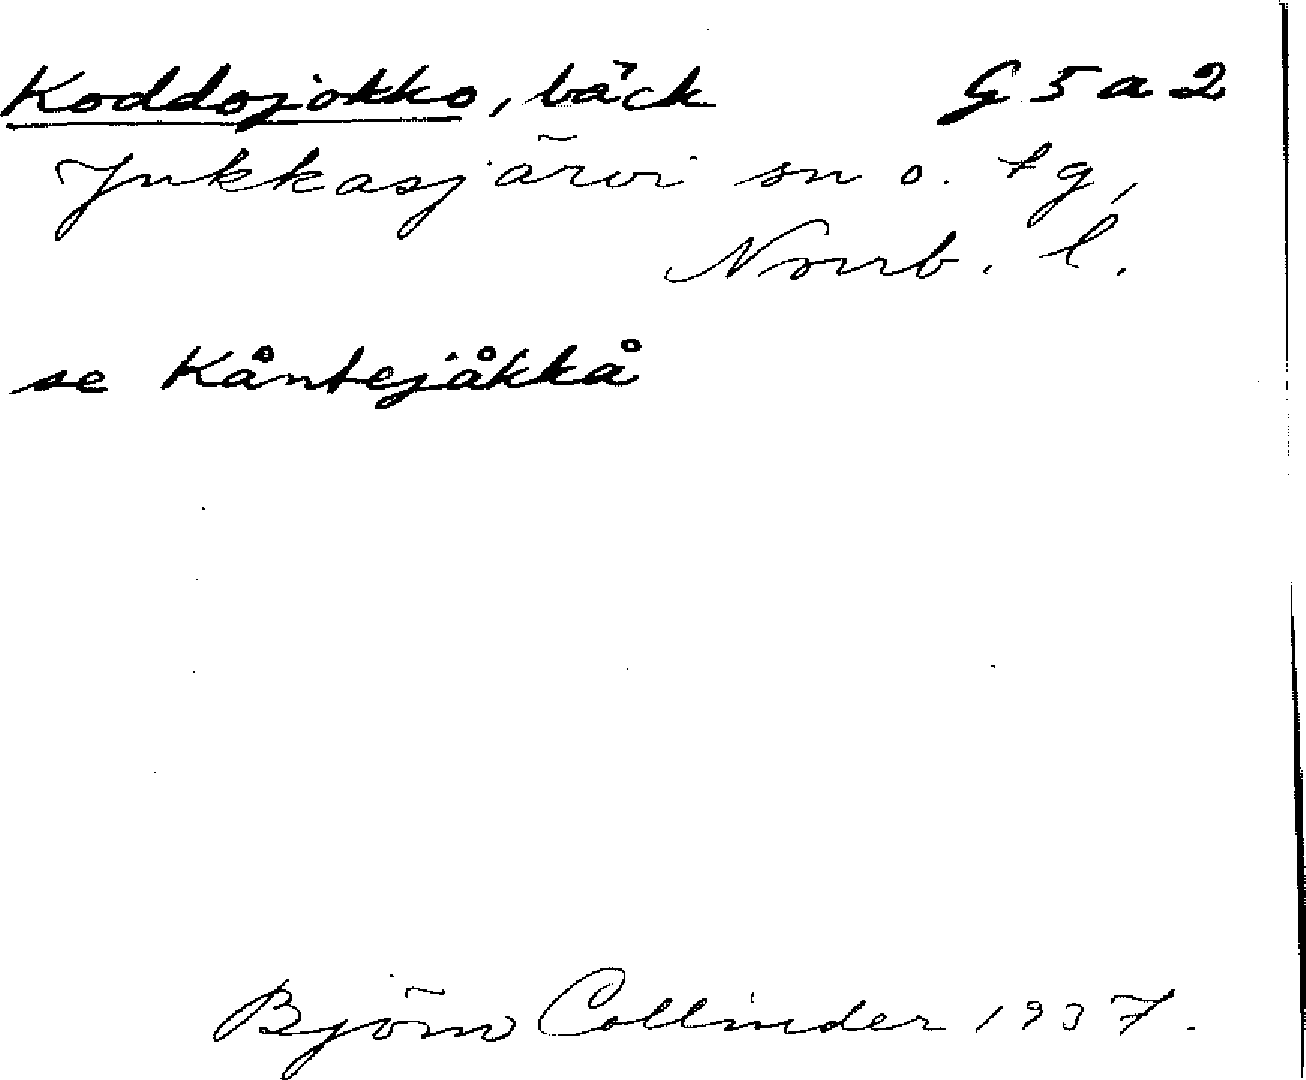 Koddojokko, bäck G 5 a 2
Jukkasjärvi sn o. tg,
Norrb. l.
se Kåntejåkkå
Björn Collinder 1937.